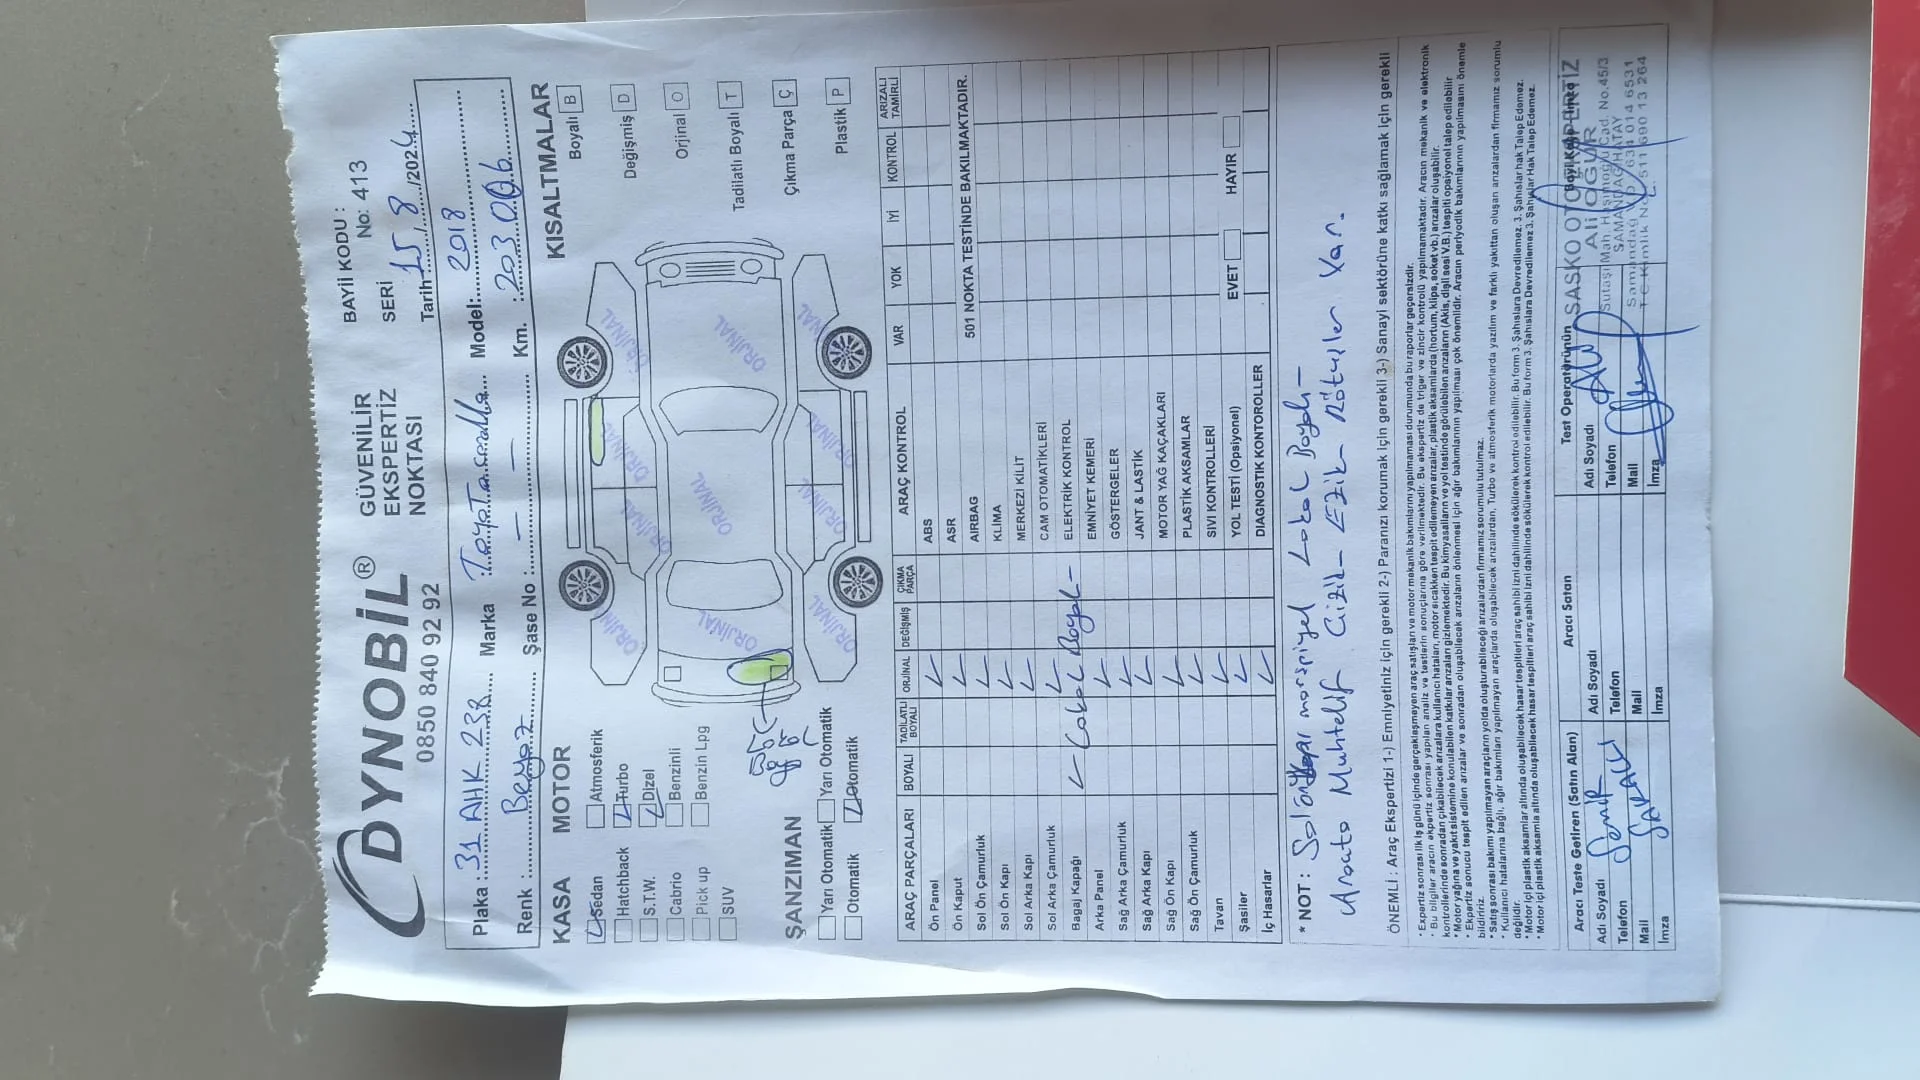 DYNOBİL®
0850 840 92 92
GÜVENİLİR
EKSPERTİZ
NOKTASI
BAYİİ KODU :
No: 413
SERİ
Tarih 15/8/2024
Plaka : 31 AHK 238 Marka : Toyota Corolla Model: 2018
Renk : Beyaz Şase No : — — Km. : 203.006
KASA
Sedan
Hatchback
S.T.W.
Cabrio
Pick up
SUV
MOTOR
Atmosferik
Turbo
Dizel
Benzinli
Benzin Lpg
ŞANZIMAN
Yarı Otomatik Yarı Otomatik
Otomatik Otomatik
ORJİNAL
ORJİNAL
ORJİNAL
ORJİNAL
ORJİNAL
ORJİNAL
ORJİNAL
ORJİNAL
ORJİNAL
ORJİNAL
KISALTMALAR
Boyalı B
Değişmiş D
Orjinal O
Tadilatlı Boyalı T
Çıkma Parça Ç
Plastik P
ARAÇ PARÇALARI BOYALI TADİLATLI BOYALI ORJİNAL DEĞİŞMİŞ ÇIKMA PARÇA
Ön Panel
Ön Kaput
Sol Ön Çamurluk
Sol Ön Kapı
Sol Arka Kapı
Sol Arka Çamurluk
Bagaj Kapağı Lokal Boyalı
Arka Panel
Sağ Arka Çamurluk
Sağ Arka Kapı
Sağ Ön Kapı
Sağ Ön Çamurluk
Tavan
Şasiler
İç Hasarlar
ARAÇ KONTROL VAR YOK İYİ KONTROL ARIZALI TAMİRLİ
ABS
ASR
501 NOKTA TESTİNDE BAKILMAKTADIR.
AIRBAG
KLİMA
MERKEZİ KİLİT
CAM OTOMATİKLERİ
ELEKTRİK KONTROL
EMNİYET KEMERİ
GÖSTERGELER
JANT & LASTİK
MOTOR YAĞ KAÇAKLARI
PLASTİK AKSAMLAR
SIVI KONTROLLERİ
YOL TESTİ (Opsiyonel) EVET HAYIR
DIAGNOSTIK KONTOROLLER
* NOT : Sol marşpiyel Lokal Boyalı —
Araçta Muhtelif Çizik — Ezik — Rötuşlar Var.
ÖNEMLİ : Araç Ekspertizi 1-) Emniyetiniz için gerekli 2-) Paranızı korumak için gerekli 3-) Sanayi sektörüne katkı sağlamak için gerekli
* Expertiz sonrası ilk iş günü içinde gerçekleşmeyen araç satışları ve motor mekanik bakımlarını yapılmaması durumunda bu raporlar geçersizdir.
* Bu bilgiler aracın expertiz sonrası yapılan analiz ve testlerin sonuçlarına göre verilmektedir. Bu ekspertiz de triger ve zincir kontrolü yapılmamaktadır. Aracın mekanik ve elektronik
kontrollerinde sonradan çıkabilecek arızalara kullanıcı hataları, motor sıcakken tespit edilemeyen arızalar, plastik aksamlarda (hortum, klips, soket vb.) arızalar oluşabilir.
* Motor yağına ve yakıt sistemine konulabilen katkılar arızaları gizlemektedir. Bu kimyasalların ve yol testinde görülebilen arızaların (Akis, dişli sesi V.B.) tespiti opsiyonel talep edilebilir
* Ekpertiz sonucu tespit edilen arızalar ve sonradan oluşabilecek arızaların önlenmesi için ağır bakımlarının yapılması çok önemlidir. Aracın periyodik bakımlarının yapılmasını önemle
bildiririz.
* Satış sonrası bakımı yapılmayan araçların yolda oluşturabileceği arızalardan firmamız sorumlu tutulmaz.
* Kullanıcı hatalarına bağlı, ağır bakımları yapılmayan araçlarda oluşabilecek arızalardan, Turbo ve atmosferik motorlarda yazılım ve farklı yakıttan oluşan arızalardan firmamız sorumlu
değildir.
* Motor içi plastik aksamlar altında oluşabilecek hasar tespitleri araç sahibi izni dahilinde sökülerek kontrol edilebilir. Bu form 3. Şahıslara Devredilemez. 3. Şahıslar hak Talep Edemez.
* Motor içi plastik aksamla altında oluşabilecek hasar tespitleri araç sahibi izni dahilinde sökülerek kontrol edilebilir. Bu form 3. Şahıslara Devredilemez 3. Şahıslar Hak Talep Edemez.
Aracı Teste Getiren (Satın Alan)
Adı Soyadı Semir
Telefon
Mail
İmza
Aracı Satan
Adı Soyadı
Telefon
Mail
İmza
Test Operatörünün
Adı Soyadı
Telefon
Mail
İmza
SASKO OTO EKSPERTİZ
Ali OĞUR
Cad. No.45/3
SAMANDAĞ/HATAY
Samandağ 634 014 6531
T.C. Kimlik No: 511 690 13 264